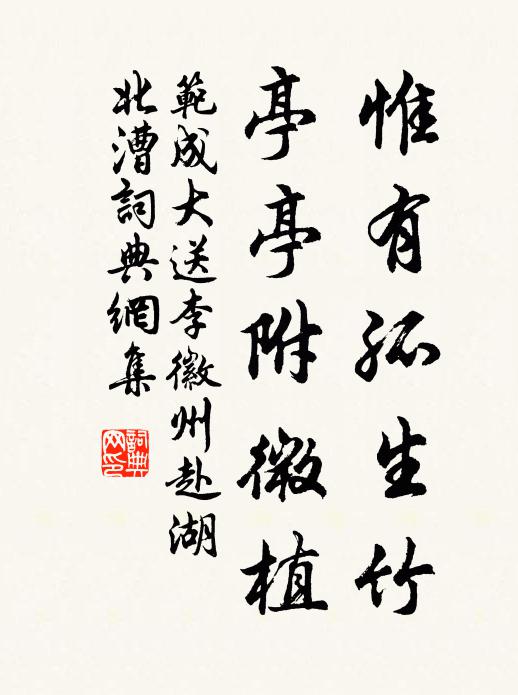 惟有孤生竹
亭亭附微植
範成大送李徽州赴湖
北漕詞典網集
詞典
网印